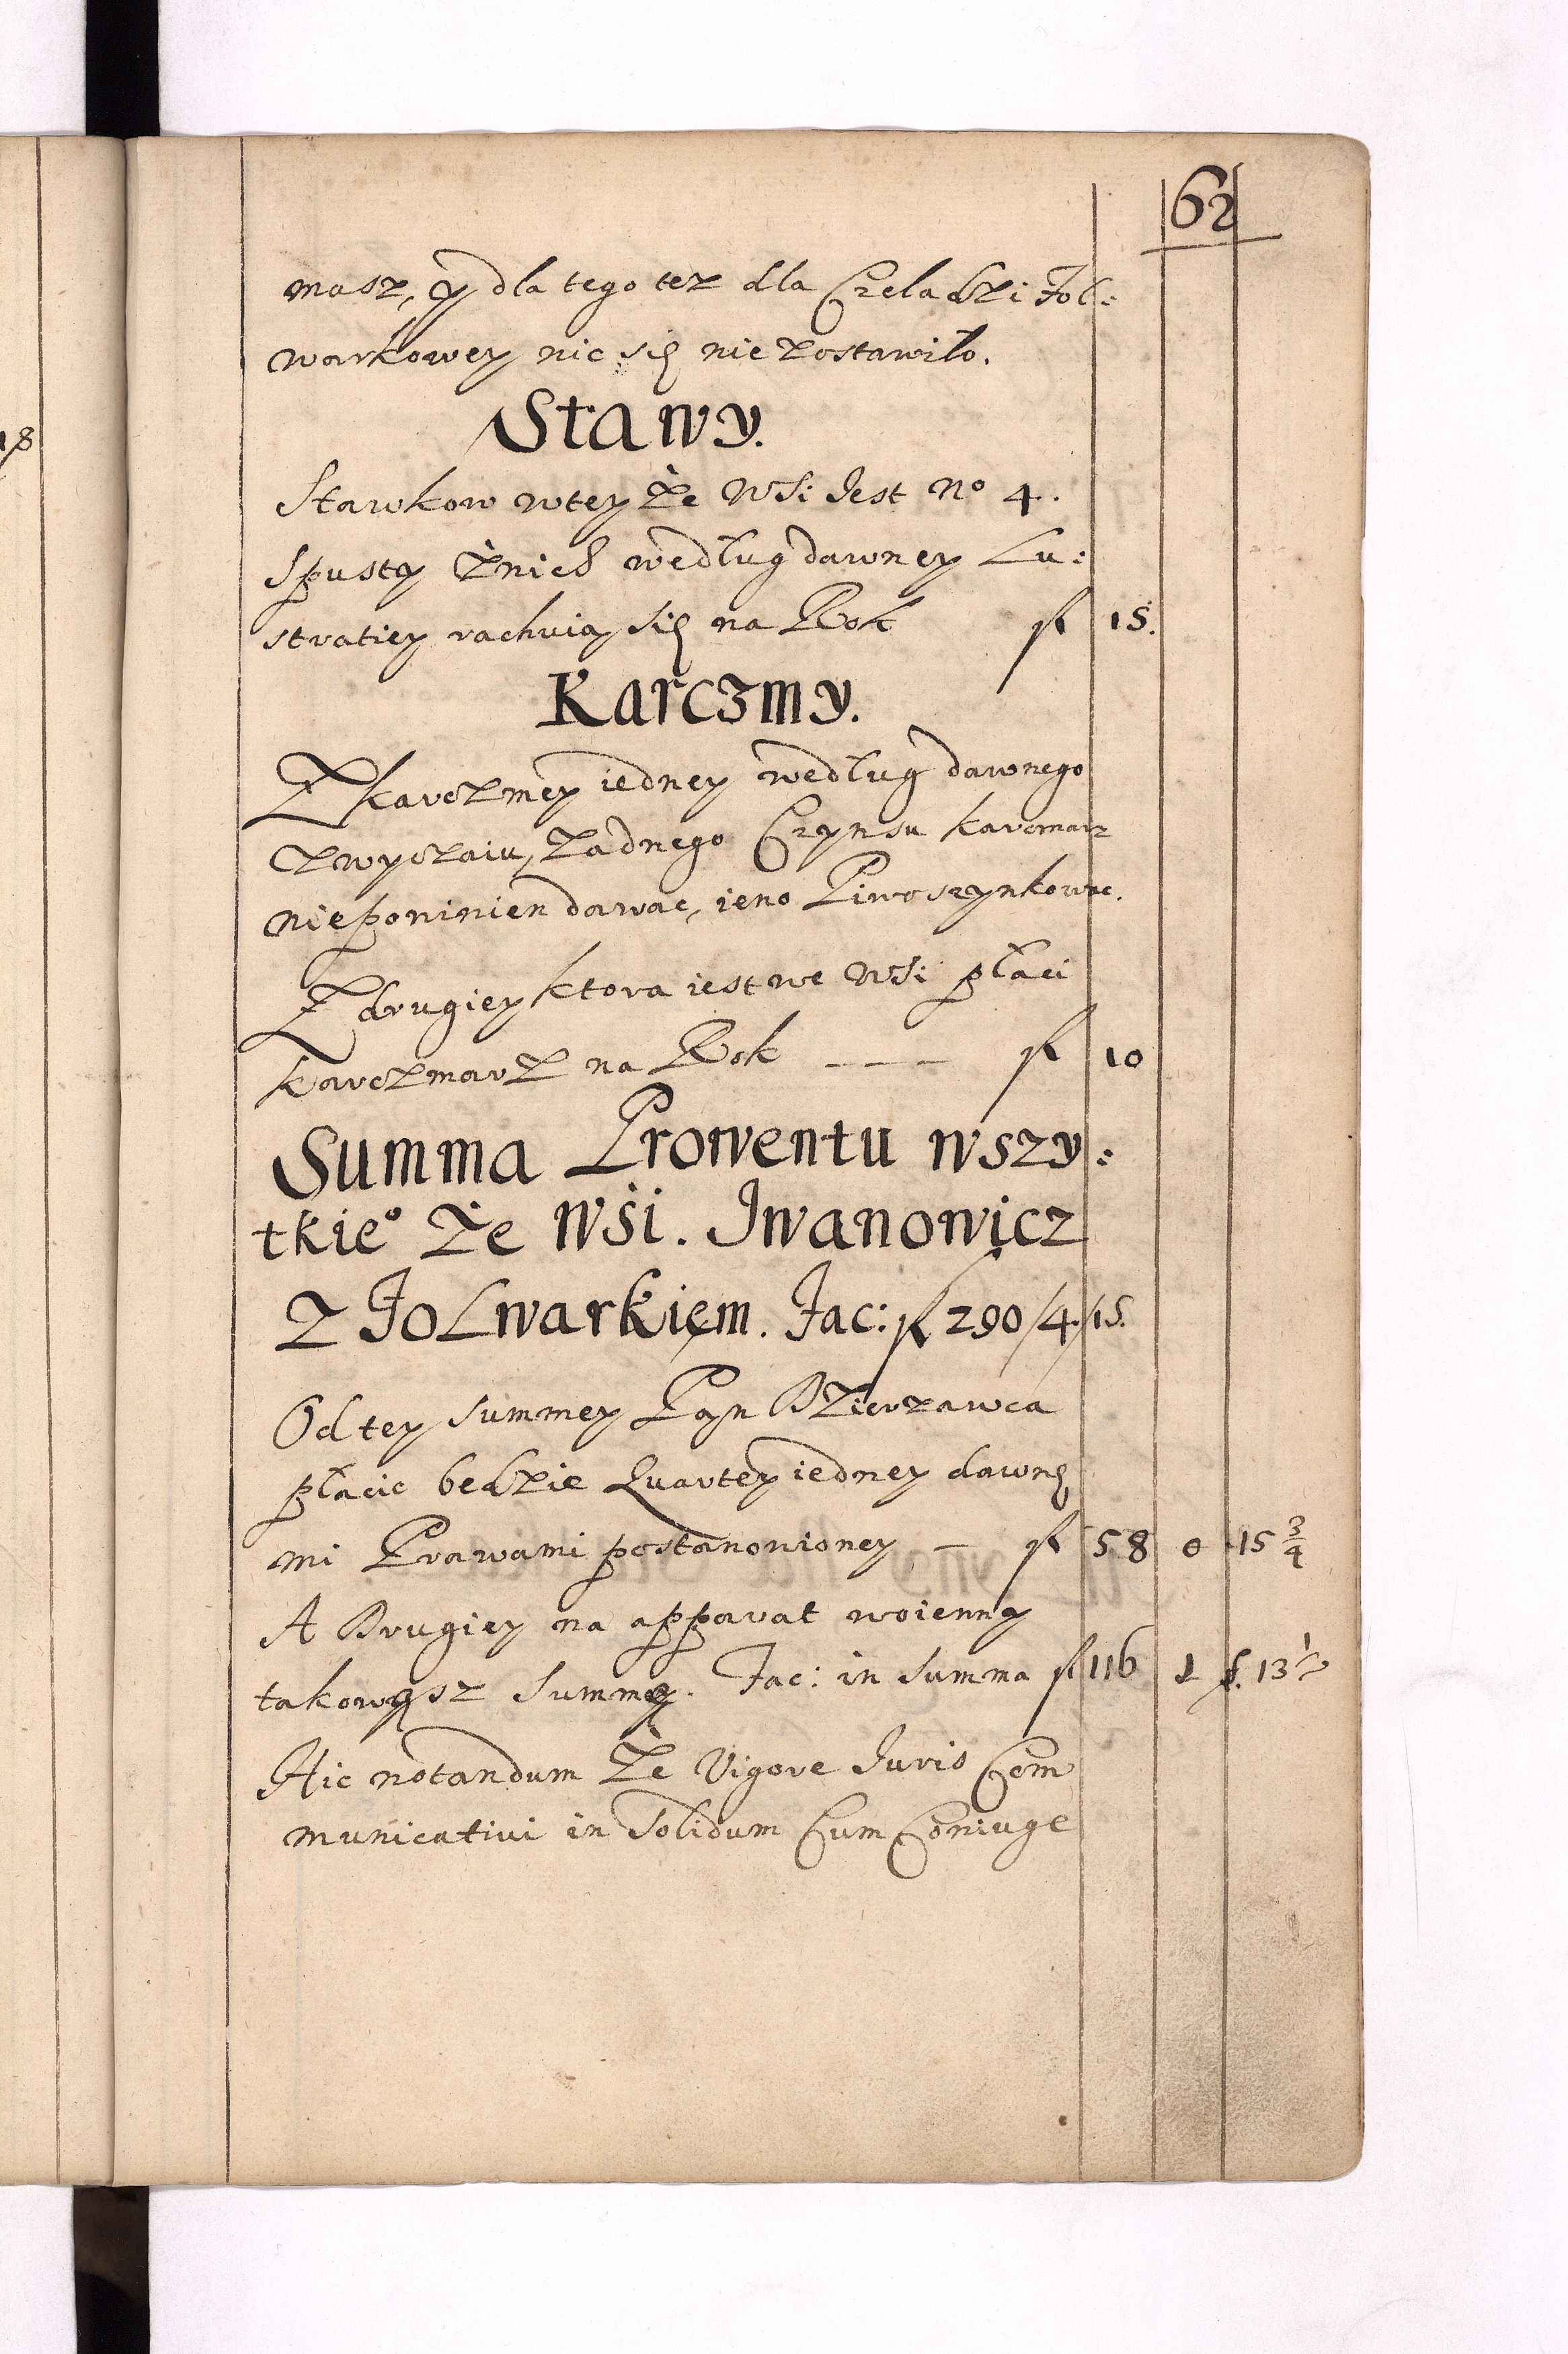 62
18
masz, y dla tego tez dla Czeladzi Fol:
warkowey nic się nie zostawiło.
Stawy.
Stawkow wtey że wsi Jest No 4.
Spusty żnich według dawney Lu:
stratiey rachuią się na Rok fl 15.
Karczmy.
Z karczmey iedney według dawnego
zwyczaiu, żadnego Czynszu karcmarz
niepowinien dawac, ieno Piwo szynkowac.
Z drugiey ktora iest we wsi płaci
karczmarz na Rok --- fl 10
Summa Prowentu wszy:
tkieo że wśi. Iwanowicz
z Folwarkięm. Fac: fl 290/4./15.
Od tey summey Pan Dzierzawca
płacic bedzie Quartey iedney dawnę
mi Prawami postanowioney — fl 58 0 15 3/4
A Drugiey na apparat woienny
takowąsz summę. Fac: in summa fl 116 1 ß. 13 1/2
Hic notandum że Vigore Iuris Com
municativi in Solidum Cum Coniuge